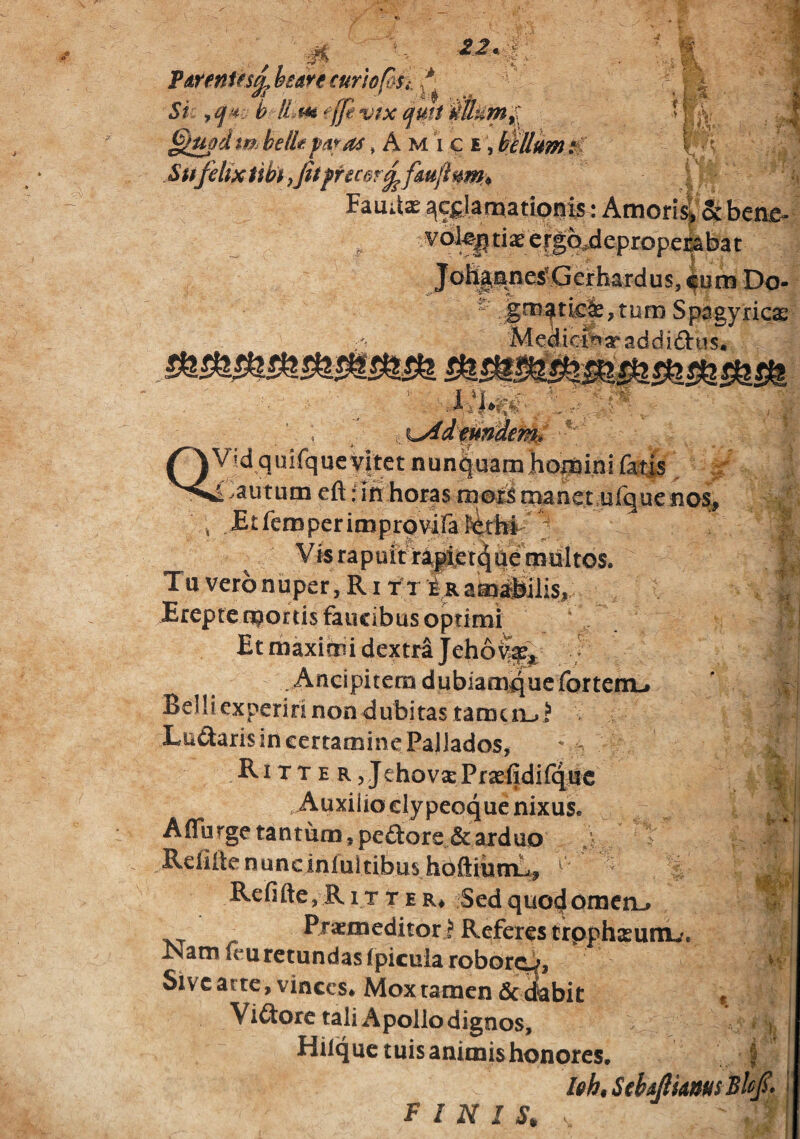 22.
Parentesq́; beare curiosos.
Si , qu b ll um esse vix quit ullum,
Quod tm belle paras, AMICE, bellum:
Sit felix tibi, sit precor q́; faustum.
Faustæ acclamationis: Amoris, & bene-
volentiæ ergò deproperabat
Johannes Gerhardus, cum Do-
gmaticæ, tum Spagyricæ
Medicinæ addictus.
II.
Ad eundem.
QVid quisque vitet nunquam homini satis
cautum est: in horas mors manet usque nos,
Et semper improvisa lethi
Vis rapuit rapietque multos.
Tu verò nuper, RITTER amabilis,
Erepte mortis faucibus optimi
Et maximi dextrâ Jehovæ,
Ancipitem dubiamque sortem
Belli experiri non dubitas tamen?
Luctaris in certamine Pallados,
RITTER, Jehovæ Præsidisque
Auxilio clypeoque nixus.
Assurge tantùm, pectore & arduo
Resiste nunc insultibus hostium,
Resiste, RITTER. Sed quod omen
Præmeditor? Referes trophæum.
Nam seu retundas spicula robore,
Sive arte, vinces. Mox tamen & dabit
Victore tali Apollo dignos,
Hisque tuis animis honores.
Ioh. Sebastianus Bloss.
FINIS.